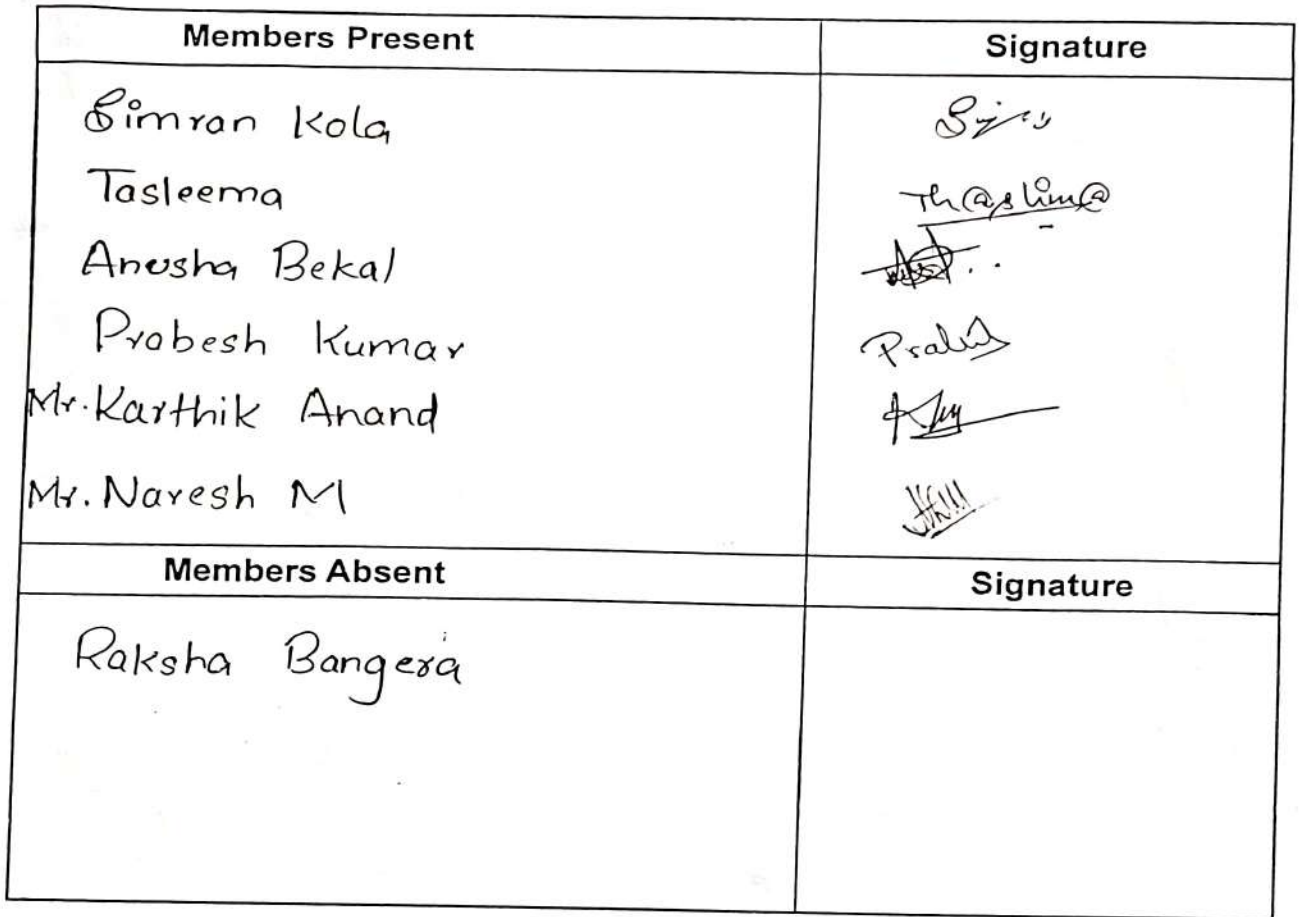 Members Present Signature
Simran Kola
Tasleema Th@slim@
Anusha Bekal
Prabesh Kumar
Mr. Karthik Anand
Mr. Naresh M
Members Absent Signature
Raksha Bangera